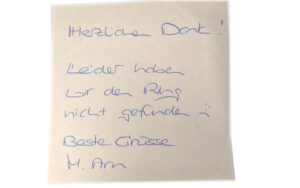 Herzlichen Dank!
Leider haben
wir den Ring
nicht gefunden :
Beste Grüsse
M. Arn